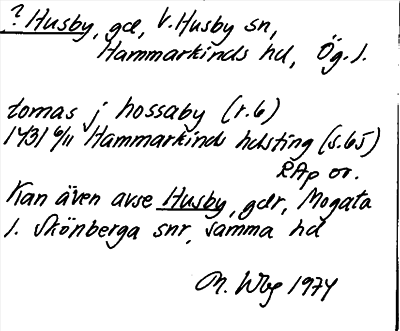 ? Husby, gd, V. Husby sn,
Hammarkinds hd, Ög. l.
tomas j hossaby (r. 6)
1431 6/11 Hammarkinds hdsting (s. 65)
RAp or.
Kan även avse Husby, gdr, Mogata
l. Skönberga snr, samma hd
M. Wbg 1974